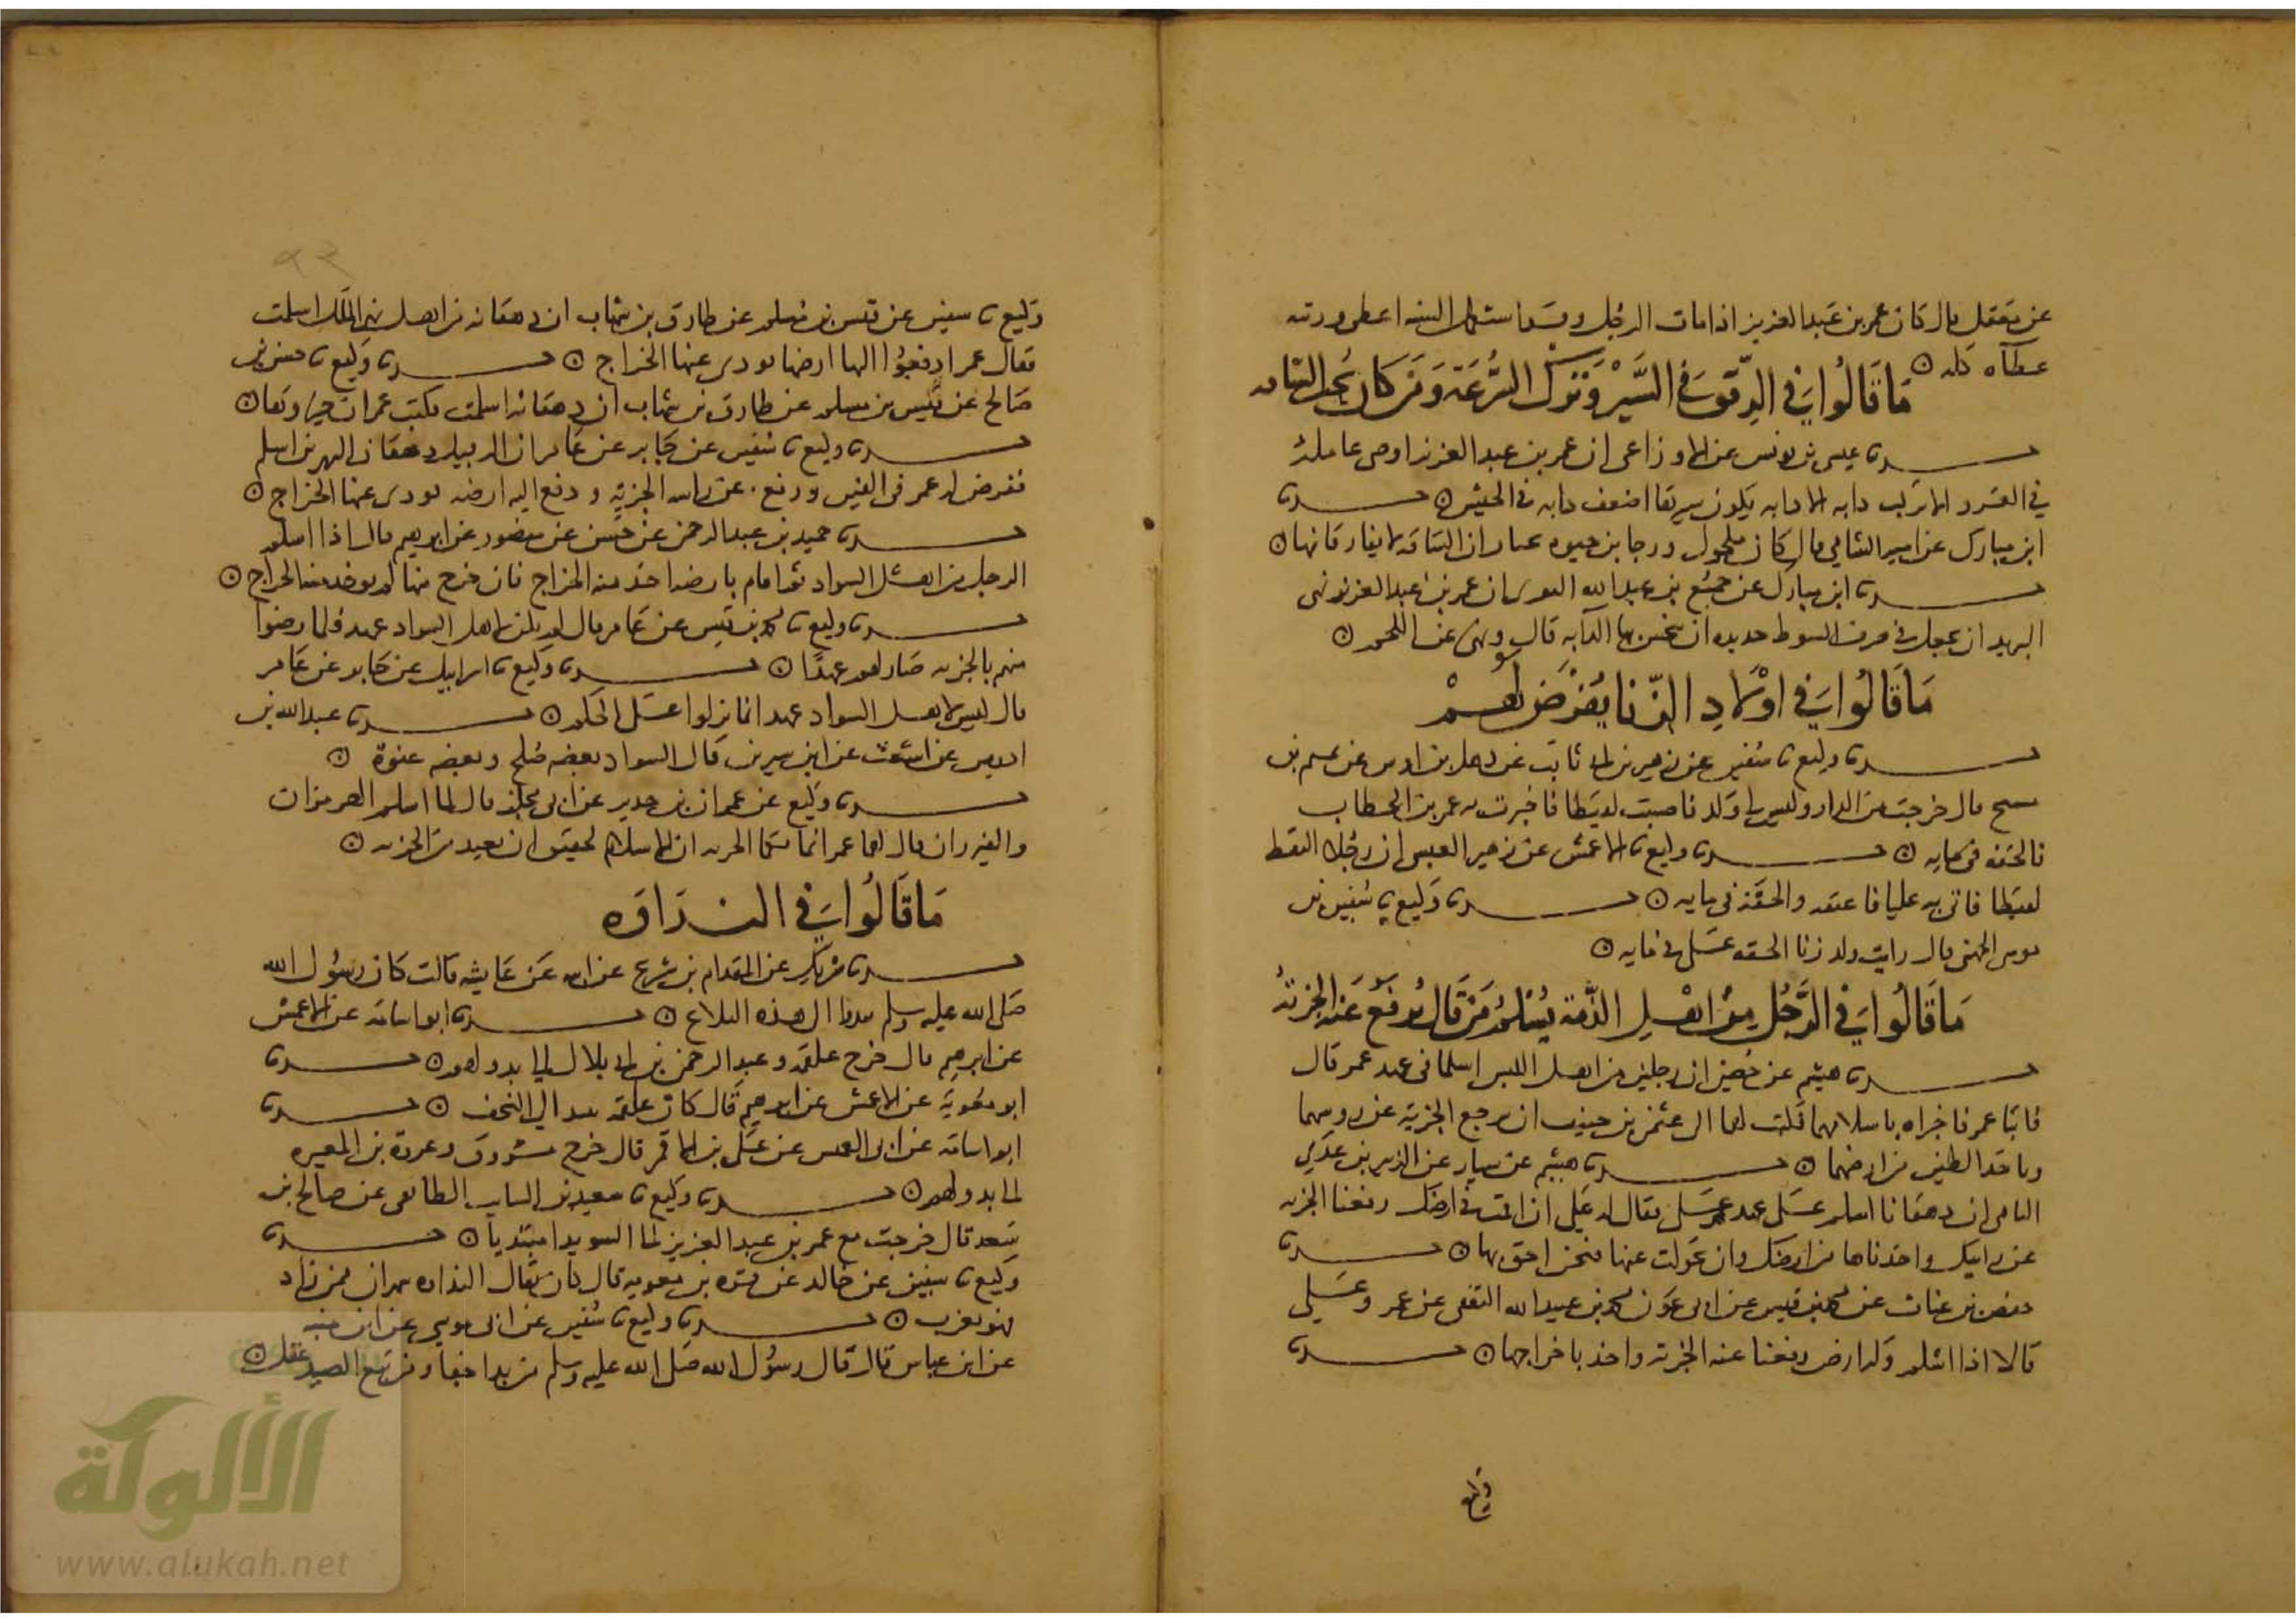 عن معقل قال كان عمر بن عبد العزيز اذا مات الرجل وقد استكمل السنه اعطى ورثته
عطآه كله
مَا قَالُوا في الرِّفق في السَّيْر وَتركِ السُّرعَة وَمَن كان يحب الساقه
حدثنا عيسى بن يونس عن الاوزاعي ان عمر بن عبد العزيز اوصى عامله
في الغزو الا تركب دابه الا دابه يكون سيرها اضعف دابه في الجيش حدثنا
ابن مبارك عن اميه الشامي قال كان مكحول ورجا بن حيوه يختاران الساقه لا يفارقانها
حدثنا ابن مبارك عن جميع بن عبد الله ان عمر بن عبد العزيز نهى
البريد ان يجعل في طرف السوط حديده ان ينخس بها الدآبه قال ونهى عن اللجم
مَا قَالُوا في اوْلادِ الزِّنا يُفرَض لَهُمْ
حدثنا وكيع نا سفين عن زهير بن ابي ثابت عن ذهل بن اوس عن تميم بن
مسيح قال خرجت من الدار وليس لي ولد فاصبت لقيطا فاخبرت به عمر بن الخطاب
فالحقه في مايه حدثنا وكيع نا الاعمش عن زهير العبسي ان رجلا التقط
لقيطا فاتى به عليا فاعتقه والحقه في مايه حدثنا وكيع نا سفين عن
موسى الجهني قال رايت ولد زنا الحقه على في مايه
مَا قَالُوا في الرَّجُلِ مِنْ اهْلِ الذِّمة يُسْلمُ مَنْ قَال يُرفَعُ عَنه الجزيةُ
حدثنا هشيم عن حصين ان رجلين من اهل اليس اسلما في عهد عمر قال
فاتيا عمر فاخبراه باسلامهما فكتب لهما الى عثمن بن حنيف ان يرفع الجزية عن روسهما
وياخذ الطسق من ارضهما حدثنا هشيم عن سيار عن الزبير بن عدي
ان دهقانا اسلم على عهد على فقال له علي ان اقمت في ارضك رفعنا الجزيه
عن راسك واخذناها من ارضك وان تحولت عنها فنحن احق بها حدثنا
حفص بن غياث عن محمد بن قيس عن ابي عون محمد بن عبيد الله الثقفي عن عمر وعلي
قالا اذا اسلم وله ارض وضعنا عنه الجزية واخذنا خراجها حدثنا
وكيع
وكيع نا سفين عن قيس بن مسلم عن طارق بن شهاب ان دهقانه من اهل نهر الملك اسلمت
فقال عمر ادفعوا اليها ارضها تودى عنها الخراج حدثنا وكيع نا حسن بن
صالح عن قيس بن مسلم عن طارق بن شهاب ان دهقانه اسلمت فكتب عمر ان خيروها
حدثنا وكيع نا سفين عن جابر عن عامر ان الرفيل دهقان النهرين اسلم
ففرض له عمر في الفين ورفع عن راسه الجزية ودفع اليه ارضه يودى عنها الخراج
حدثنا حميد بن عبد الرحمن عن حسن عن منصور عن ابرهيم قال اذا اسلم
الرجل من اهل السواد ثم اقام بارضه اخذ منه الخراج فان خرج منها لم يوخذ منه الخراج
حدثنا وكيع نا محمد بن قيس عن عامر قال لم يكن لاهل السواد عهد فلما رضوا
منهم بالجزيه صار لهم عهدًا حدثنا وكيع نا اسرايل عن جابر عن عامر
قال ليس لاهل السواد عهد انما نزلوا على الحكم حدثنا عبد الله بن
ادريس عن اشعث عن ابن سيرين قال السواد بعضه صلح وبعضه عنوة
حدثنا وكيع عن عمران بن حدير عن ابي مجلز قال لما اسلم الهرمزان
والفيرزان قال لهما عمر انما بكما الجزيه ان الاسلام لحقيق ان يعيذ من الجزيه
مَا قَالُوا في البَدَاوَه
حدثنا شريك عن المقدام بن شريح عن ابيه عن عايشه قالت كان رسول الله
صلى الله عليه وسلم يبدوا الى هذه التلاع حدثنا ابو اسامة عن الاعمش
عن ابرهيم قال خرج علقمه وعبد الرحمن بن ابي بلال الى بدولهم حدثنا
ابو معوية عن الاعمش عن ابرهيم قال كان علقمه يبدو الى النجف حدثنا
ابو اسامة عن ابي العميس عن علي بن الاقمر قال خرج مسروق وعروة بن المغيره
الى بدو لهم حدثنا وكيع نا سعيد بن السايب الطايفي عن صالح بن
سعد قال خرجت مع عمر بن عبد العزيز الى السويدا متبديا حدثنا
وكيع نا سفين عن خالد عن معويه بن قره قال كان يقال البداوه شهران فمن زاد
فهو تعرب حدثنا وكيع نا سفين عن ابي موسى عن ابن منبه
عن ابن عباس قال قال رسول الله صلى الله عليه وسلم من بدا جفا ومن تبع الصيد غفل
الألوكة
www.alukah.net